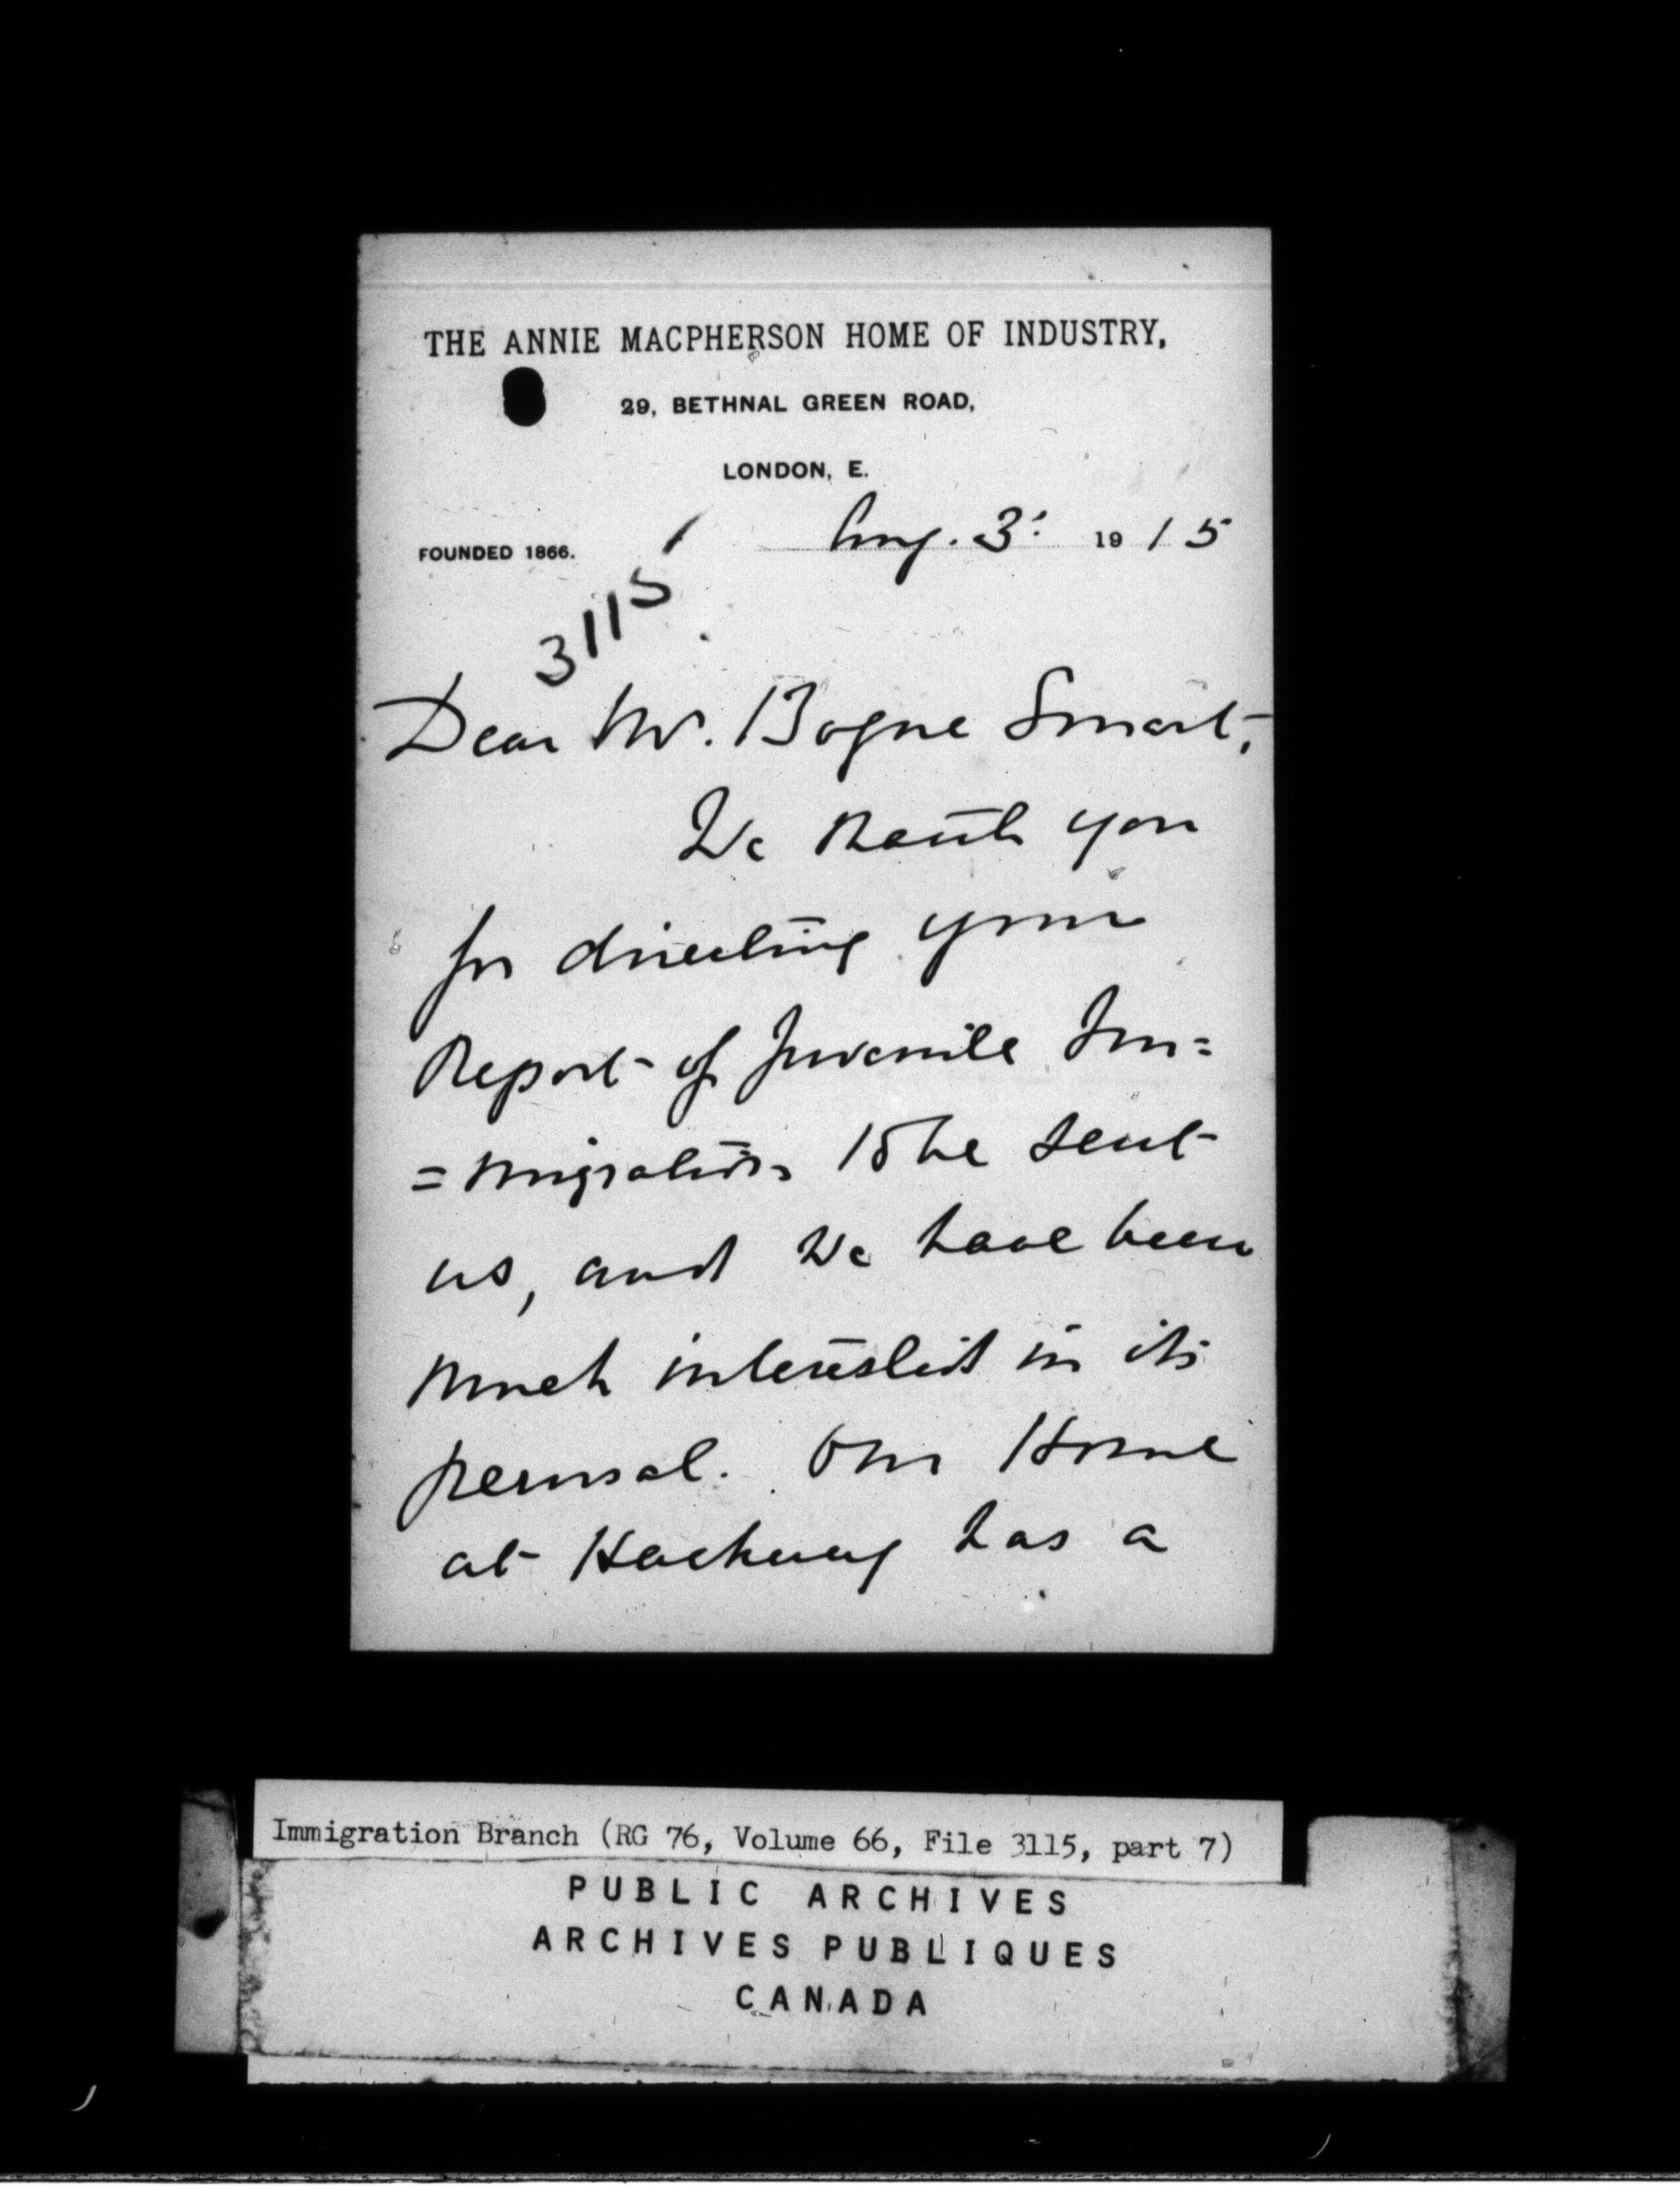 THE ANNIE MACPHERSON HOME OF INDUSTRY,
29, BETHNAL GREEN ROAD,
LONDON, E.
FOUNDED 1866.
Aug. 3: 1915
3115
Dear Mr. Bogue Smart,
We thank you
for directing your
Report of Juvenile Im=
=migration to be sent
us, and we have been
much interested in its
perusal. Our Home
at Hackney has a
Immigration Branch (RG 76, Volume 66, File 3115, part 7)
PUBLIC ARCHIVES
ARCHIVES PUBLIQUES
CANADA